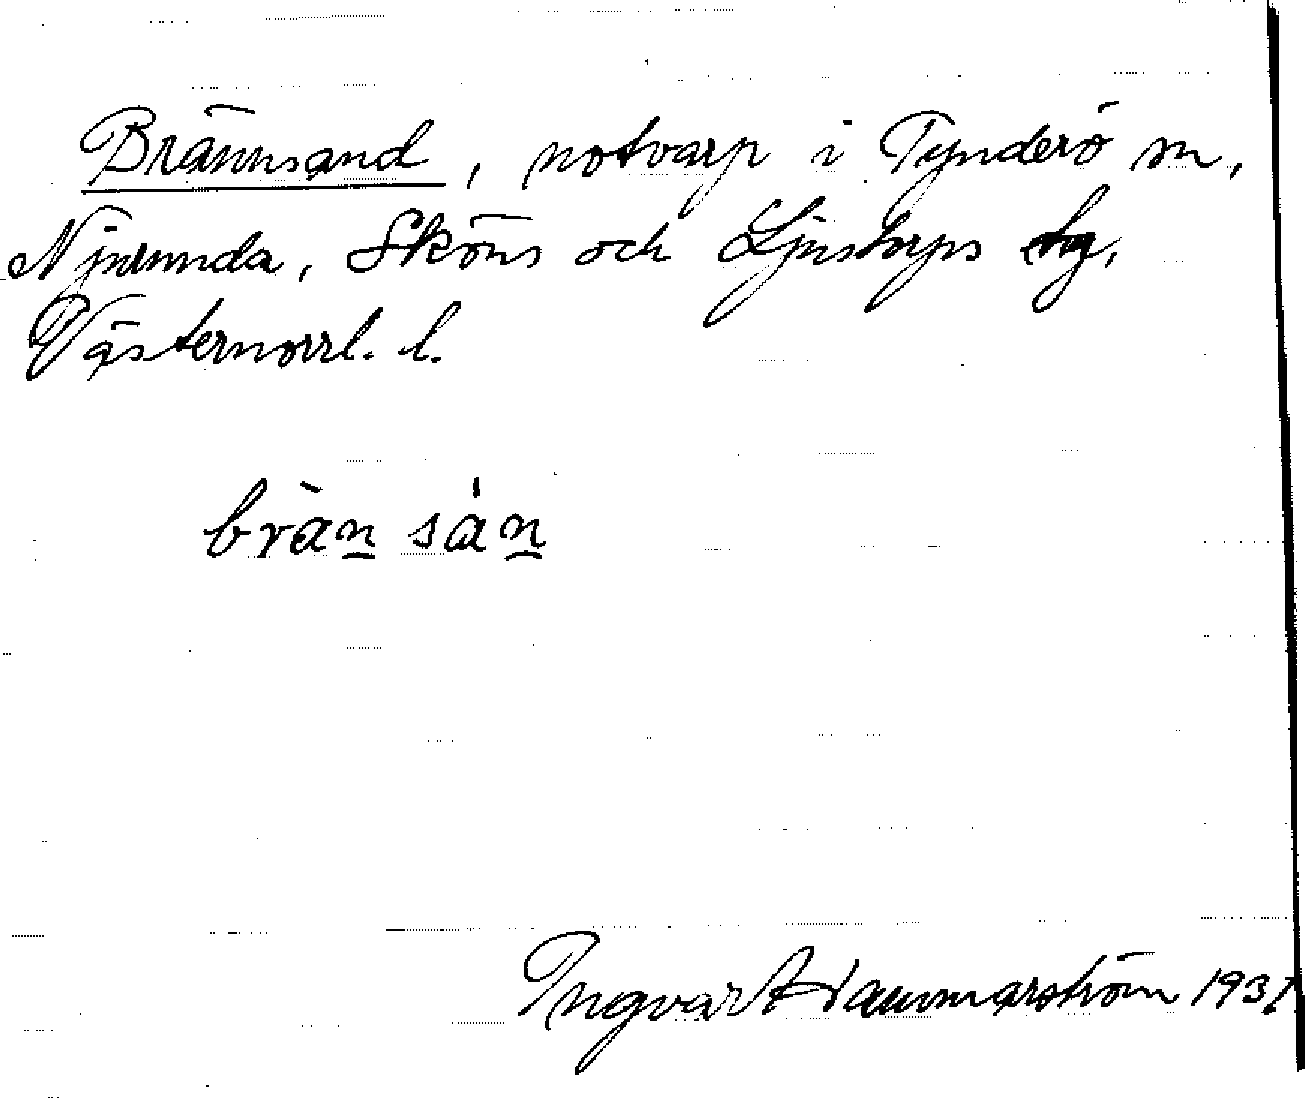 Brännsand, notvarp i Tynderö sn,
Njurunda, Sköns och Ljustorps tg,
Västernorrl. l.
bràn̲ sán̲
Ingvar Hammarström 1931